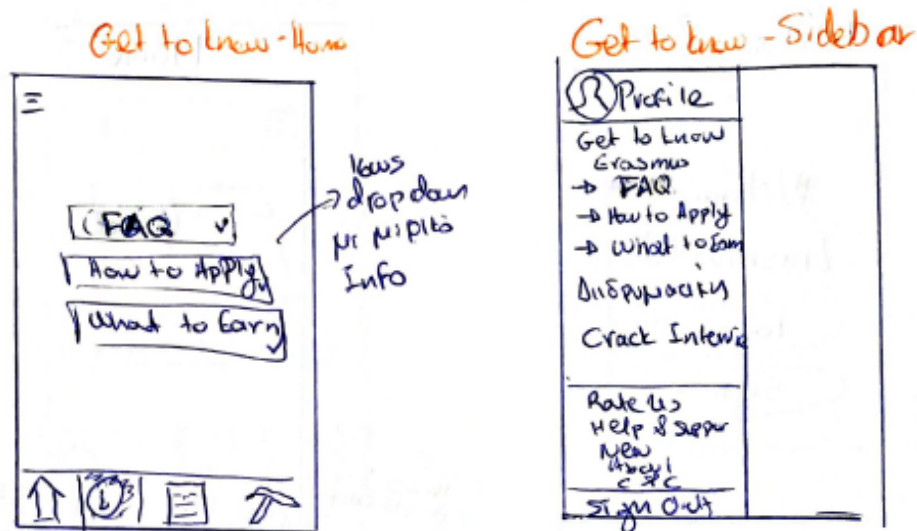 Get to know - Home
FAQ
How to Apply
What to Earn
dropdown
Info
Get to know - Sidebar
Profile
Get to know
Erasmus
→ FAQ
→ How to Apply
→ What to Earn
Crack Intervie
Rate Us
Help & Suppor
New
About
Sign Out